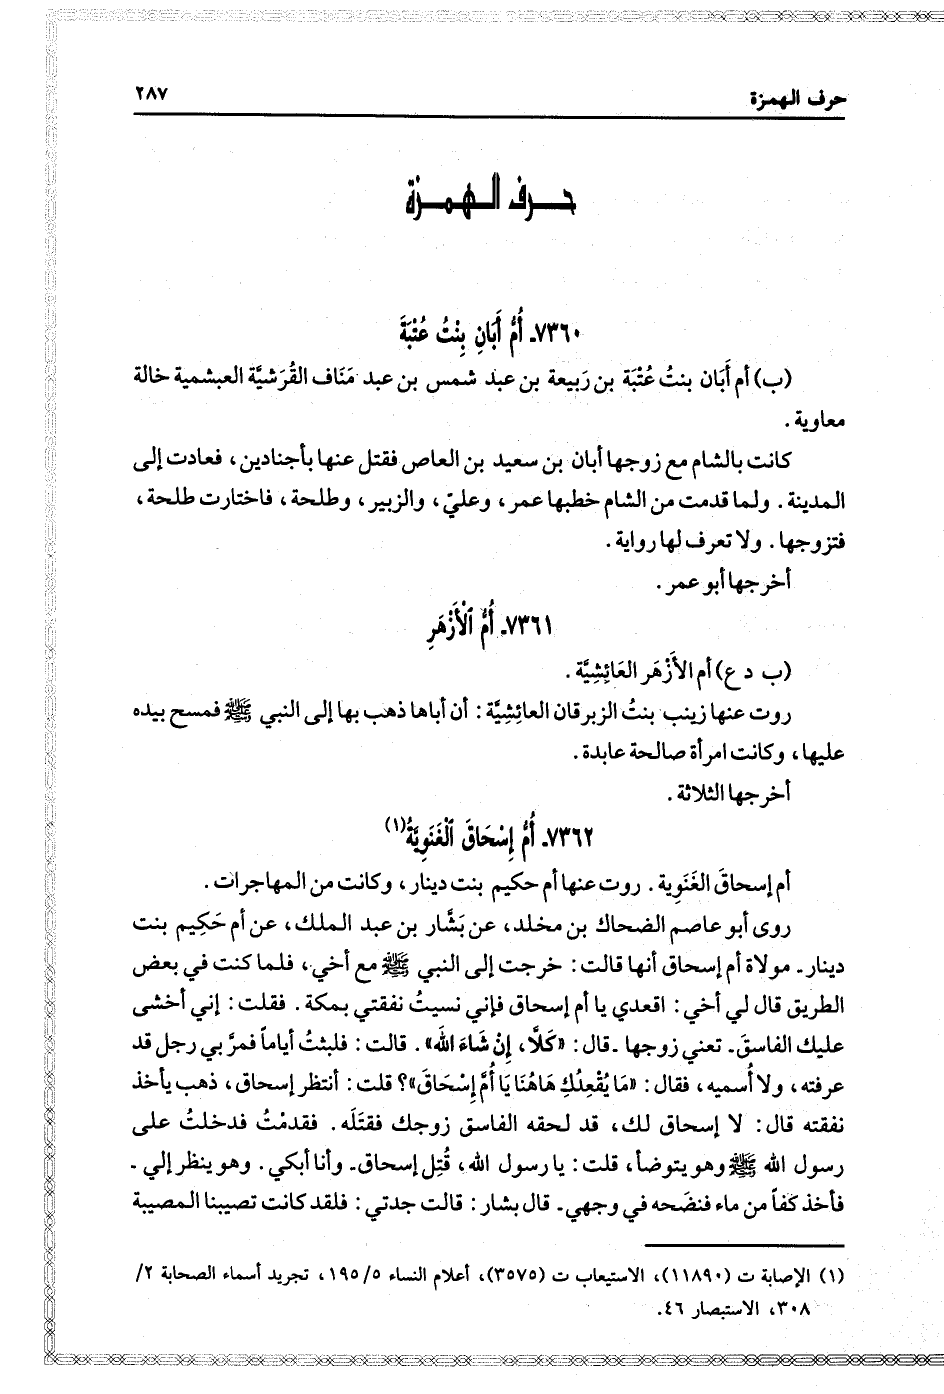 حرف الهمزة ٢٨٧
حرف الهمزة
٧٣٦٠ـ أُمُّ أَبَانِ بِنْتُ عُتْبَةَ
(ب) أم أَبَان بنتُ عُتْبَة بن رَبيعة بن عبد شمس بن عبد مَنَاف القُرَشيَّة العبشمية خالة
معاوية .
كانت بالشام مع زوجها أبان بن سعيد بن العاص فقتل عنها بأجنادين، فعادت إلى
المدينة . ولما قدمت من الشام خطبها عمر، وعليّ، والزبير، وطلحة، فاختارت طلحة،
فتزوجها . ولا تعرف لها رواية .
أخرجها أبو عمر .
٧٣٦١ـ أُمُّ ٱلْأَزْهَرِ
(ب د ع) أم الأَزْهَر العَائِشِيَّة .
روت عنها زينب بنتُ الزبرقان العائِشِيَّة : أن أباها ذهب بها إلى النبي ﷺ فمسح بيده
عليها، وكانت امرأة صالحة عابدة .
أخرجها الثلاثة .
٧٣٦٢ـ أُمُّ إِسْحَاقَ ٱلْغَنَوِيَّةُ(١)
أم إسحاقَ الغَنَوية . روت عنها أم حكيم بنت دينار، وكانت من المهاجرات .
روى أبو عاصم الضحاك بن مخلد، عن بَشَّار بن عبد الملك، عن أم حَكِيم بنت
دينار ـ مولاة أم إسحاق أنها قالت : خرجت إلى النبي ﷺ مع أخي، فلما كنت في بعض
الطريق قال لي أخي : اقعدي يا أم إسحاق فإني نسيتُ نفقتي بمكة . فقلت : إني أخشى
عليك الفاسقَ ـ تعني زوجها ـ قال : «كَلَّا، إِنْ شَاءَ اللّه» . قالت : فلبثتُ أياماً فمرَّ بي رجل قد
عرفته، ولا أُسميه، فقال : «مَا يُقْعِدُكِ هَاهُنَا يَا أُمَّ إِسْحَاقَ»؟ قلت : أنتظر إسحاق، ذهب يأخذ
نفقته قال : لا إسحاق لك، قد لحقه الفاسق زوجك فقتَلَه . فقدمْتُ فدخلتُ على
رسول الله ﷺ وهو يتوضأ، قلت : يا رسول الله، قُتِل إسحاق ـ وأنا أبكي . وهو ينظر إلي ـ
فأخذ كَفاً من ماء فنضَحه في وجهي ـ قال بشار : قالت جدتي : فلقد كانت تصيبنا المصيبة
(١) الإصابة ت (١١٨٩٠)، الاستيعاب ت (٣٥٧٥)، أعلام النساء ١٩٥/٥، تجريد أسماء الصحابة ٢/
٣٠٨، الاستبصار ٤٦.